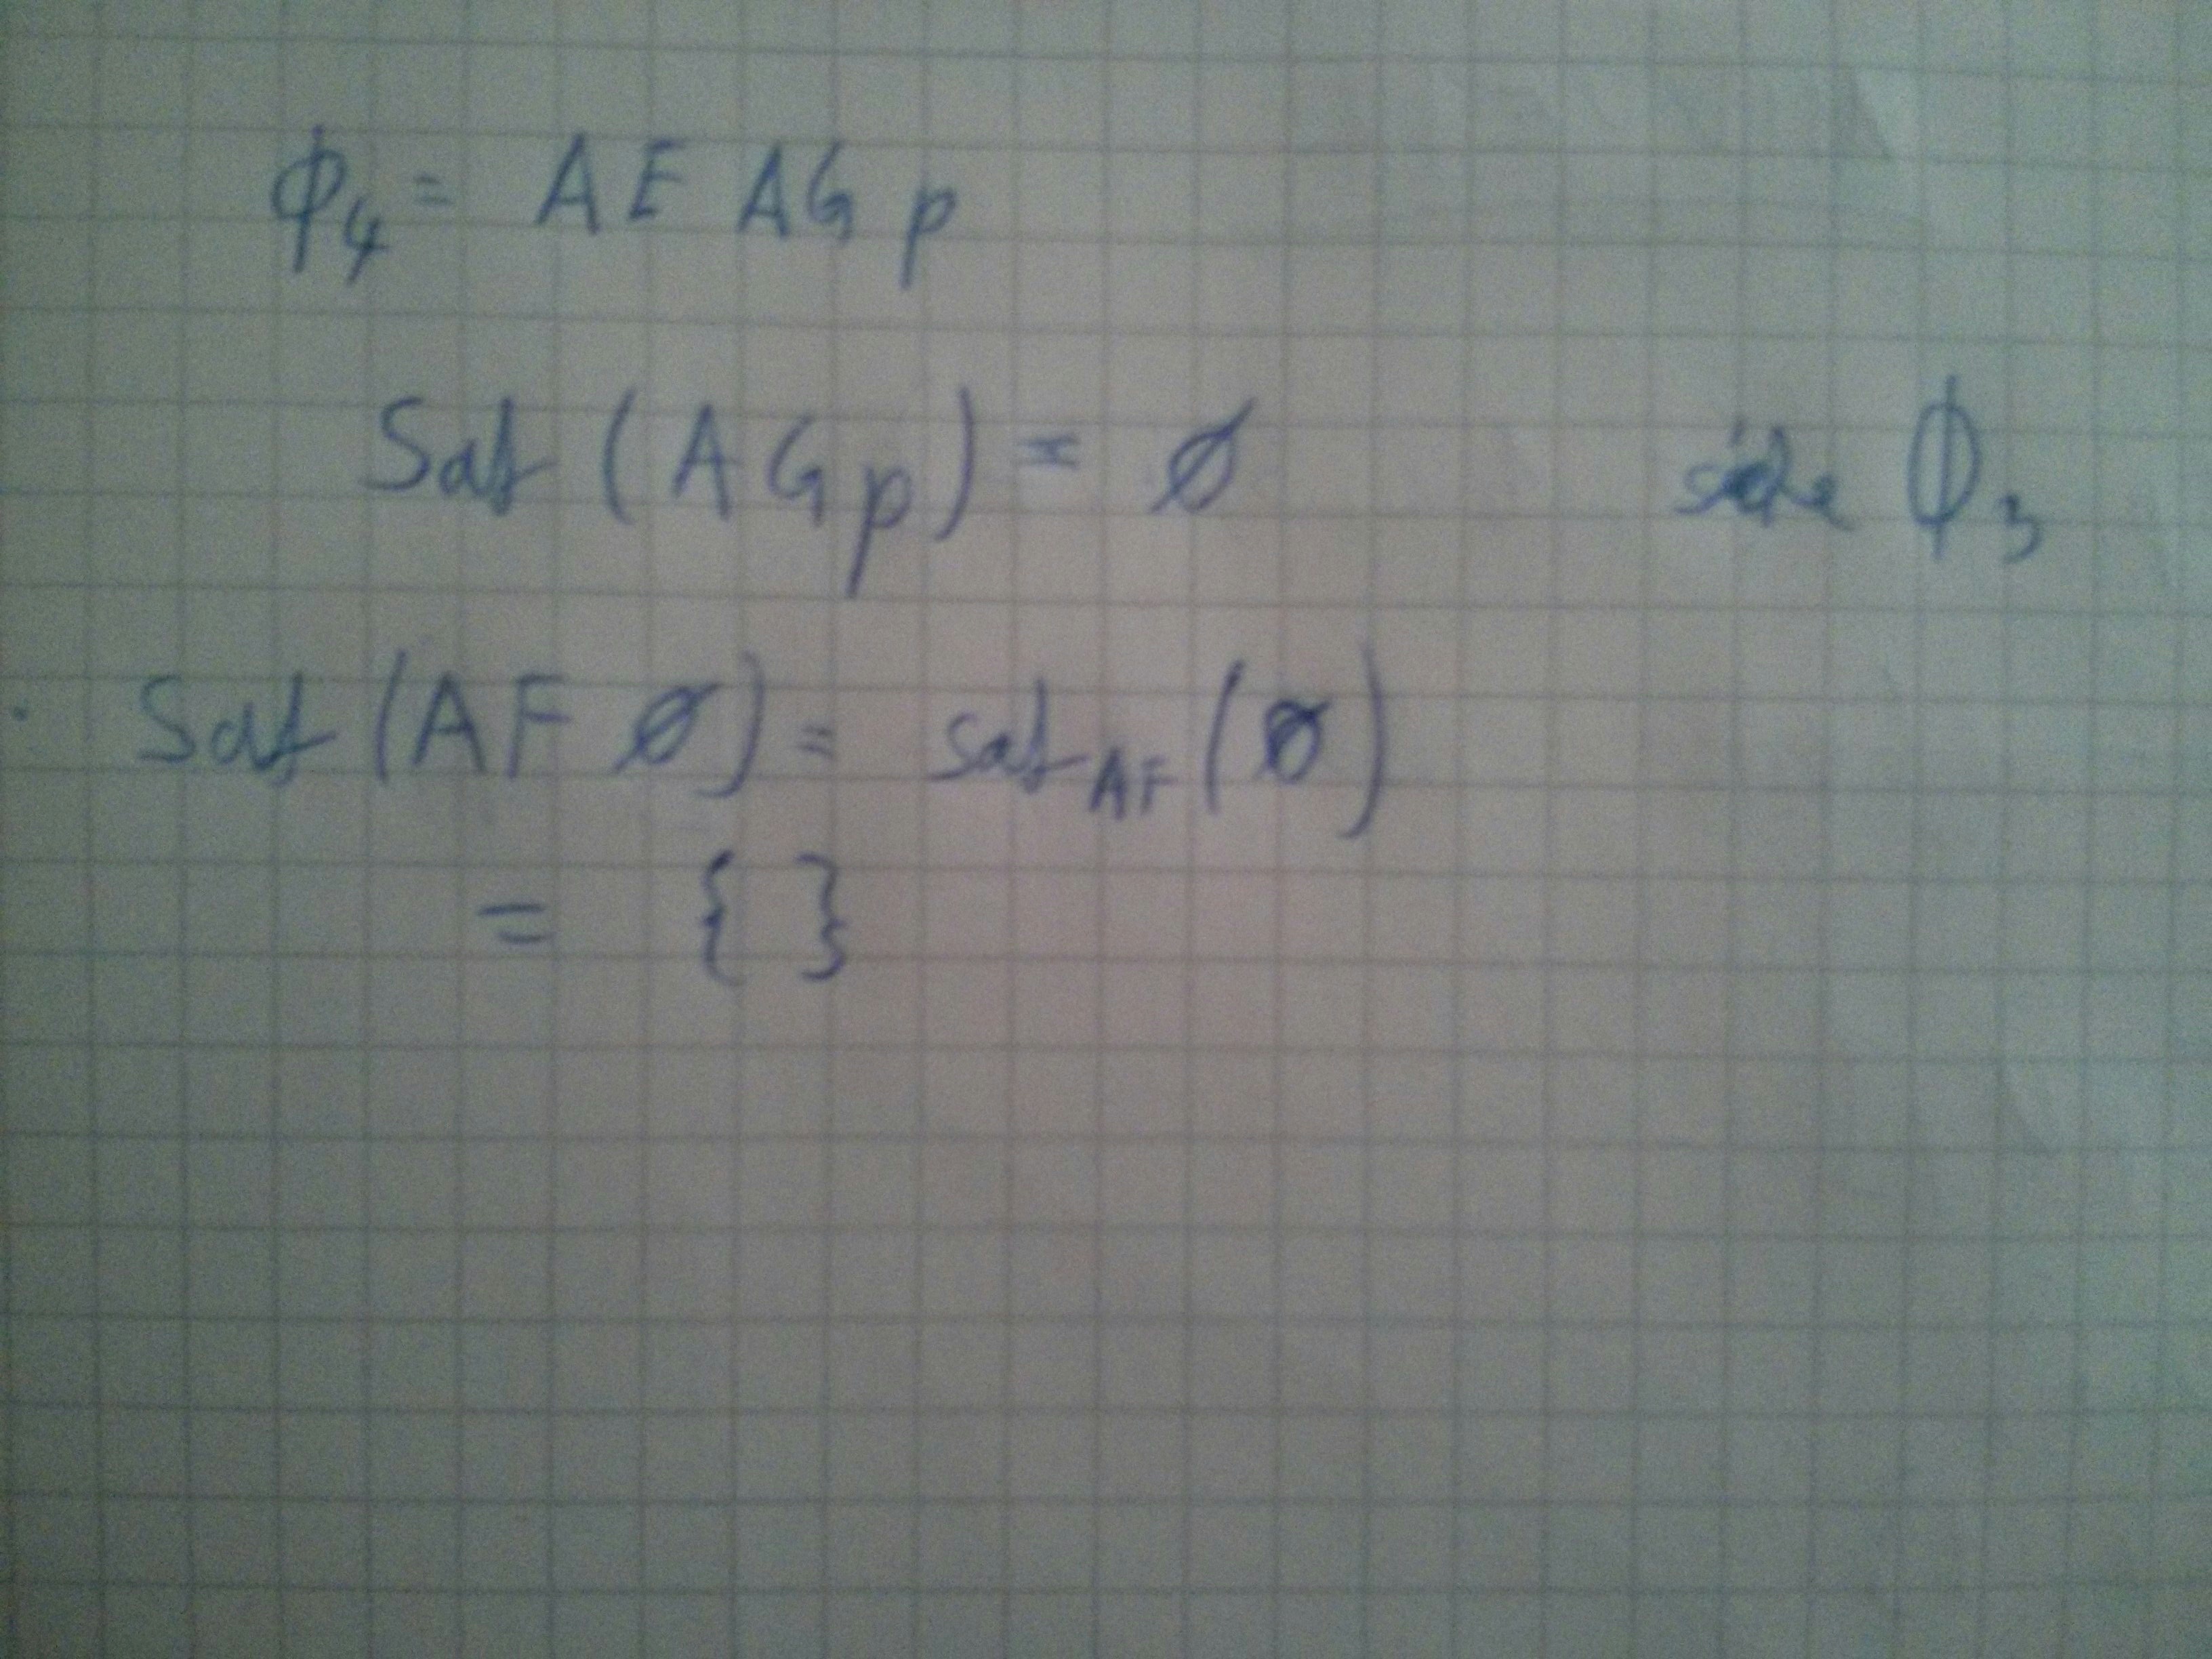 ϕ₄ = AE AG p
Sat (AGp) = ∅ siehe ϕ₃
Sat (AF ∅) = sat_AF (∅)
= { }